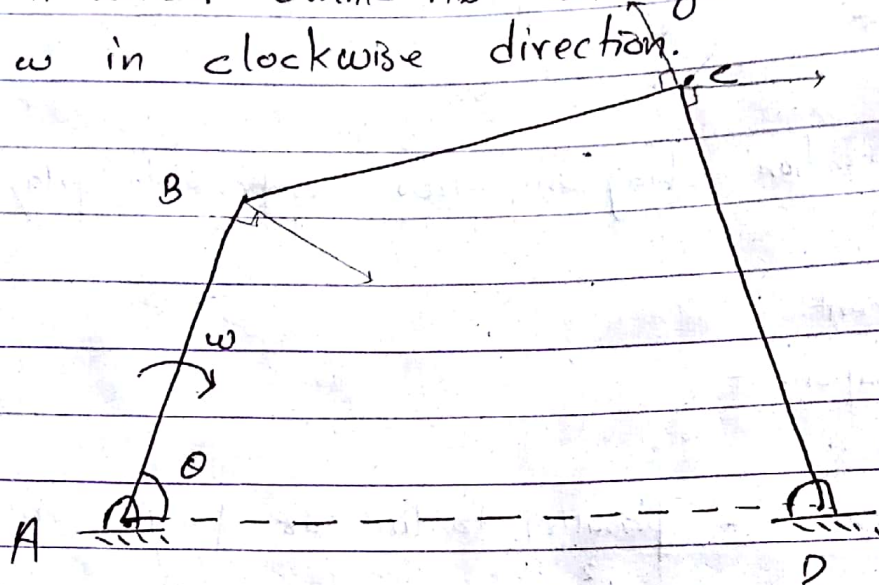 ω in clockwise direction.
C
B
ω
θ
A
D